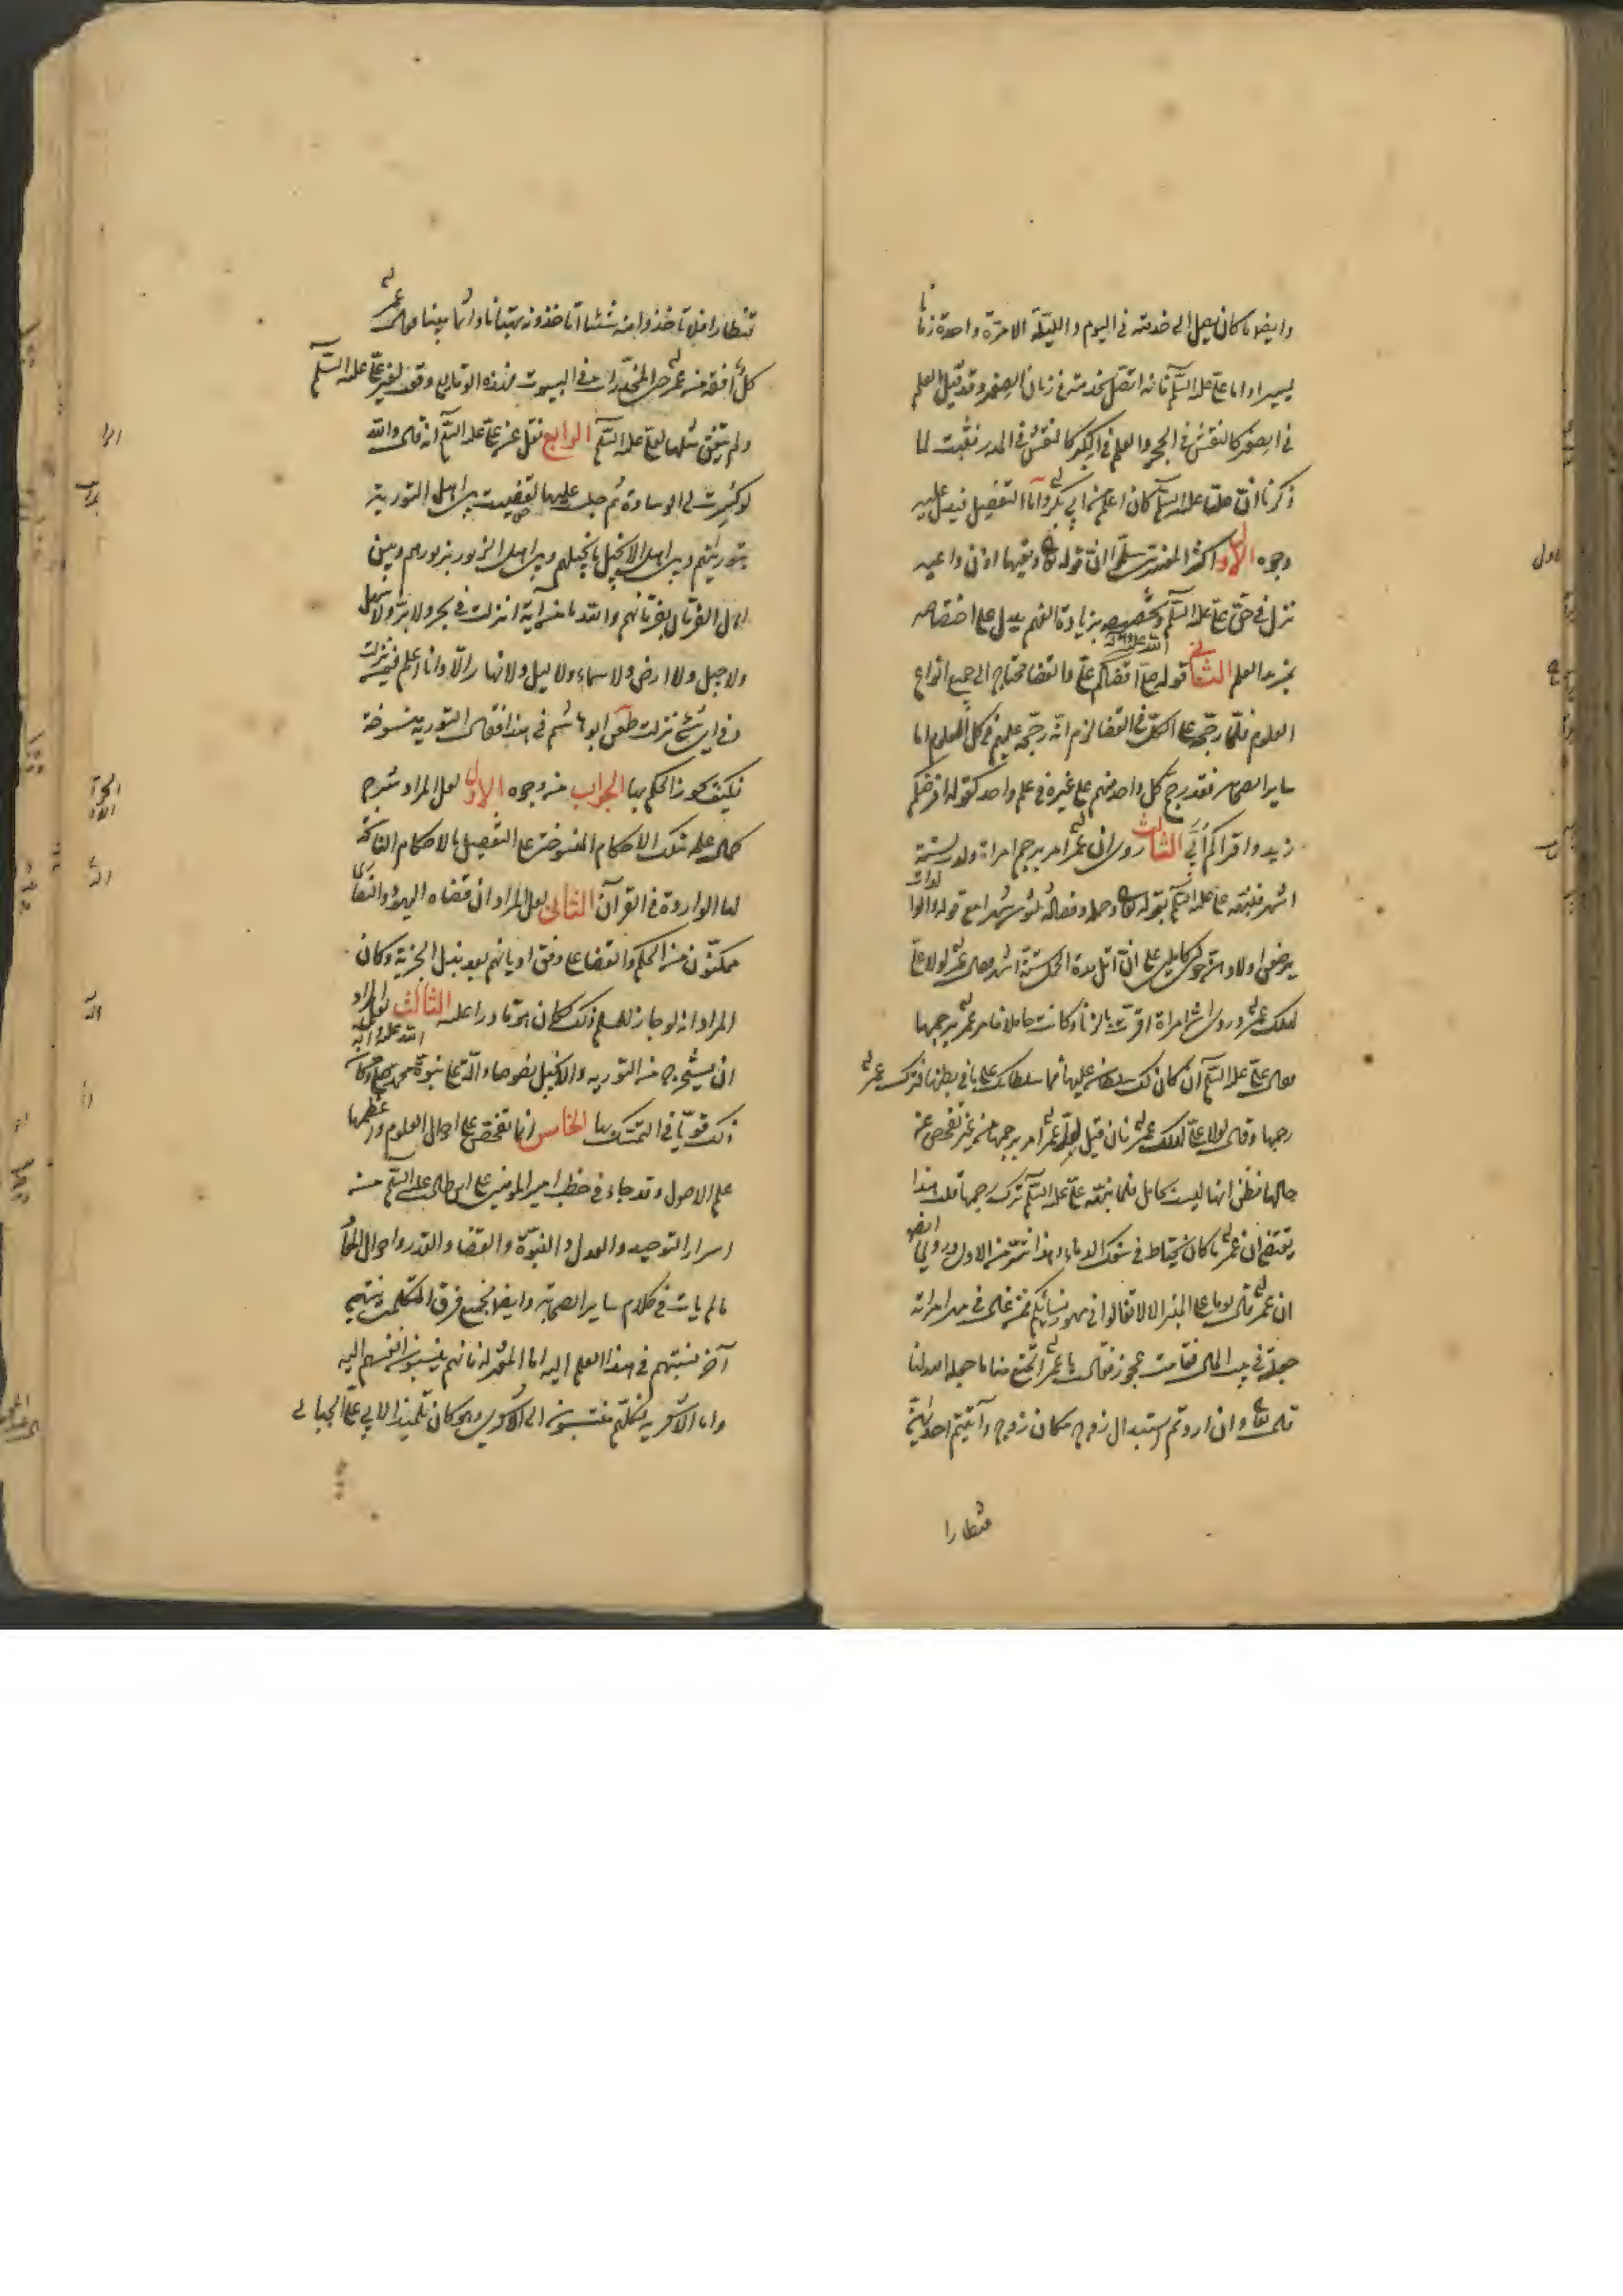 وايضا ما كان يصل الى خدمته فى اليوم والليلة الا مرة واحدة زمانا
يسيرا واما على عليه السلم فانه اتصل بخدمته فى زمان الصغر وقد قيل العلم
فى الصغر كالنقش فى الحجر والعلم فى الكبر كالنقش فى المدر فثبت لما
ذكرنا ان عليا عليه السلم كان اعلم من ابى بكر واما التفصيل فيدل عليه
وجوه الاول اكثر المفسرين سلموا ان قوله تعالى وتعيها اذن واعيه
نزل فى حق على عليه السلم وتخصيصه بزيادة الفهم يدل على اختصاصه
بمزيد العلم الثانى قوله صلى الله عليه واله اقضاكم على والقضا محتاج الى جميع انواع
العلوم فلما رجحه على الكل فى القضا لزم انه رجحه عليهم فى كل العلوم اما
ساير الصحابه فقد رجح كل واحد منهم على غيره فى علم واحد كقوله افرضكم
زيد واقراكم ابى الثالث روى ان عمر امر برجم امراة ولدت لستة
اشهر فنبهه على عليه السلم بقوله تعالى وحمله وفصاله ثلثون شهرا مع قوله والوالدات
يرضعن اولادهن حولين كاملين على ان اقل مدة الحمل ستة اشهر فقال عمر لولا على
لهلك عمر وروى ان امراة اقرت بالزنا وكانت حاملا فامر عمر برجمها
فقال على عليه السلم ان كان لك سلطان عليها فما سلطانك على ما فى بطنها فترك عمر
رجمها وقال لولا على لهلك عمر فان قيل لعل عمر امر برجمها من غير تفحص عن
حالها فظن انها ليست بحامل فلما نبهه على عليه السلم ترك رجمها قلت هذا
يقتضى ان عمر ما كان يحتاط فى سفك الدماء وهذا اشر من الاول وروى ايضا
ان عمر قال يوما على المنبر الا لا تغالوا فى مهور نسائكم فمن غالى فى مهر امراته
جعلته فى بيت المال فقامت عجوز فقالت يا عمر اتمنع منا ما جعله الله لنا
قال تعالى وان اردتم استبدال زوج مكان زوج وآتيتم احديهن
قنطارا
قنطارا فلا تاخذوا منه شيئا اتاخذونه بهتانا واثما مبينا فقال عمر
كل افقه من عمر حتى المخدرات فى البيوت فهذه الوقايع وقعت لغير على عليه السلم
ولم يتفق مثلها لعلى عليه السلم الرابع نقل عن على عليه السلم انه قال والله
لو كسرت لى الوسادة ثم جلست عليها لقضيت بين اهل التورية
بتوريتهم وبين اهل الانجيل بانجيلهم وبين اهل الزبور بزبورهم وبين
اهل الفرقان بفرقانهم والله ما من آية انزلت فى بحر ولا بر ولا سهل
ولا جبل ولا ارض ولا سماء ولا ليل ولا نهار الا وانا اعلم فيمن نزلت
وفى اى شئ نزلت طعن ابو هاشم فى هذا فقال التورية منسوخة
فكيف يجوز الحكم بها الجواب من وجوه الاول لعل المراد شرح
كمال علمه بتلك الاحكام المنسوخة على التفصيل بالاحكام الناسخة
لها الواردة فى القرآن الثانى لعل المراد ان قضاه اليهود والنصارى
ممكنون من الحكم والقضا على وفق اديانهم بعد بذل الجزية وكان
المراد انه لو جاز للمسلم ذلك لكان هو قادرا عليه الثالث لعل المراد
ان يستخرج من التورية والانجيل نصوصا دالة على نبوة محمد صلى الله عليه واله وكان
ذلك قويا فى التمسك بها الخامس انا نتفحص على احوال العلوم واعظمها
علم الاصول وقد جاء فى خطب امير المومنين على بن ابى طالب عليه السلم من
اسرار التوحيد والعدل والنبوة والقضا والقدر واحوال المعاد
ما لم يات فى كلام ساير الصحابة وايضا فجميع فرق المتكلمين ينتهى
آخر نسبتهم فى هذا العلم اليه اما المعتزلة فانهم ينسبون انفسهم اليه
واما الاشعرية فكلهم منتسبون الى الاشعرى وهو كان تلميذا لابى على الجبائى